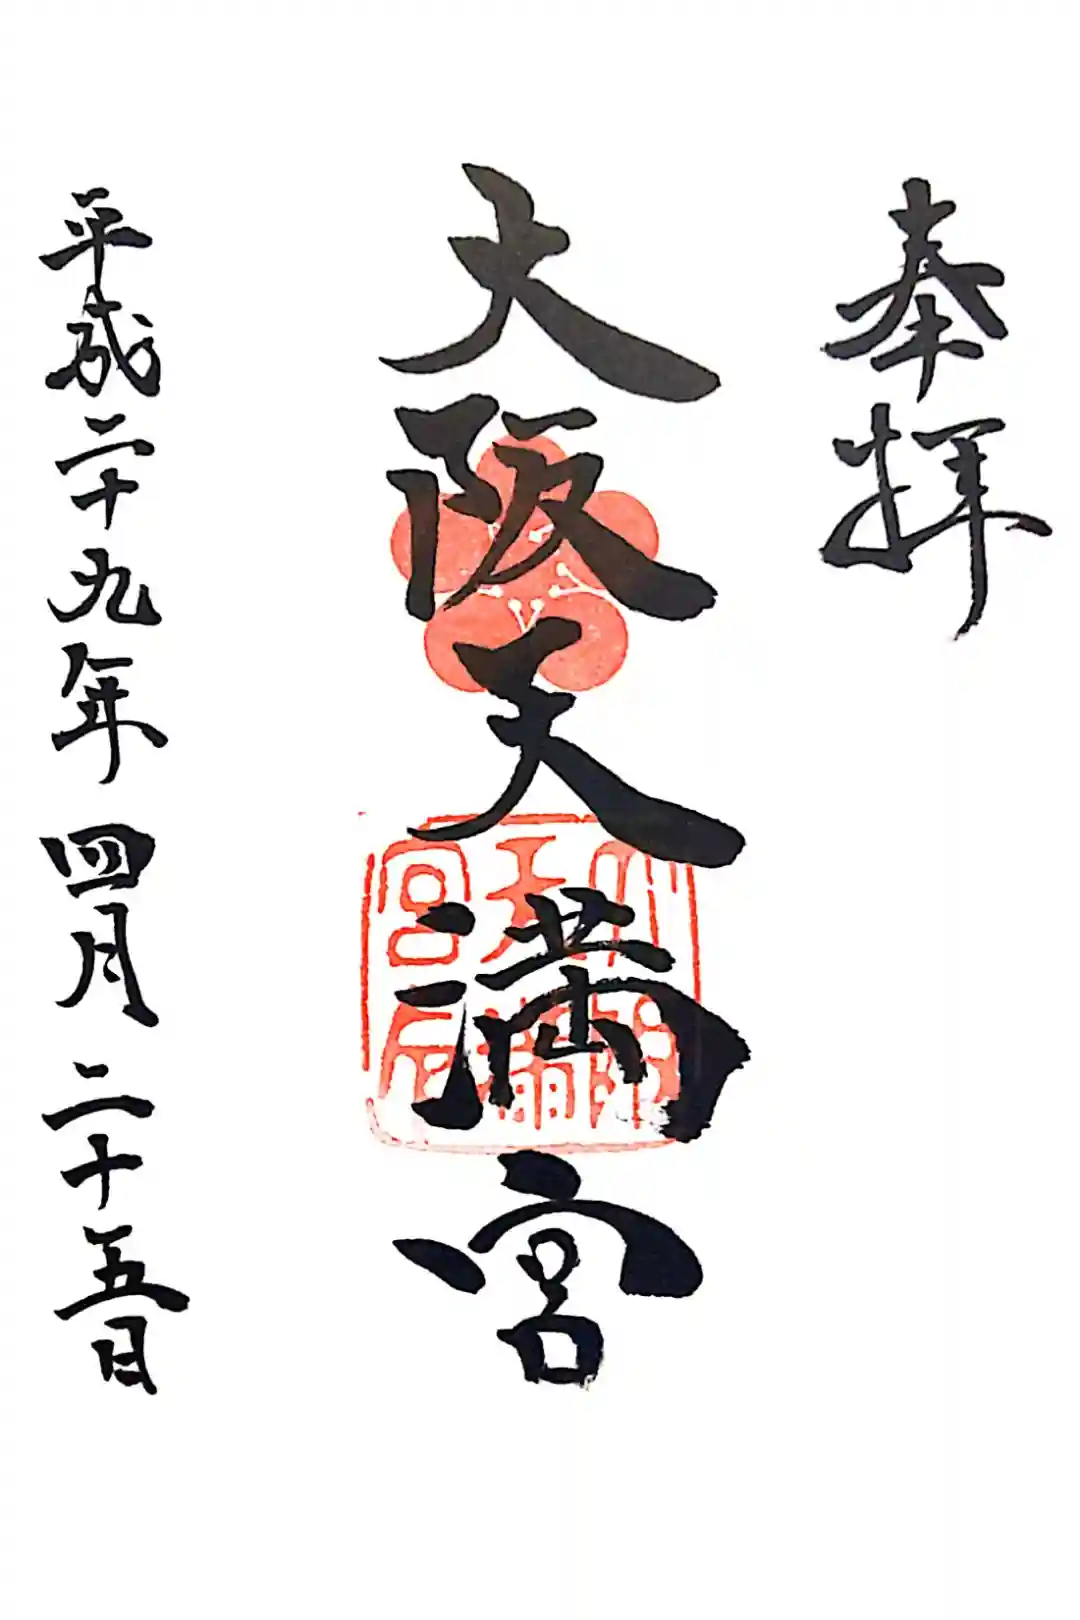 奉拝
大阪天満宮
平成二十九年四月二十五日